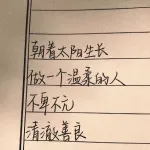 朝着太阳生长
做一个温柔的人
不卑不亢
清澈善良